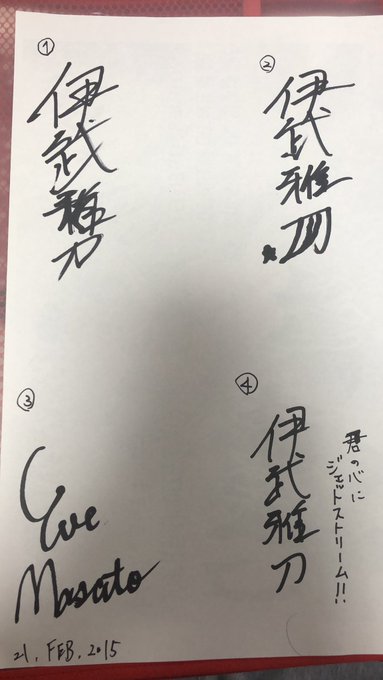 ①
伊武雅刀
②
伊武雅刀
③
Eve
Masato
21. FEB. 2015
④
伊武雅刀
君の心に
ジェットストリーム!!